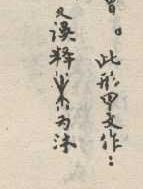 。此形甲文作：
又误释为沫